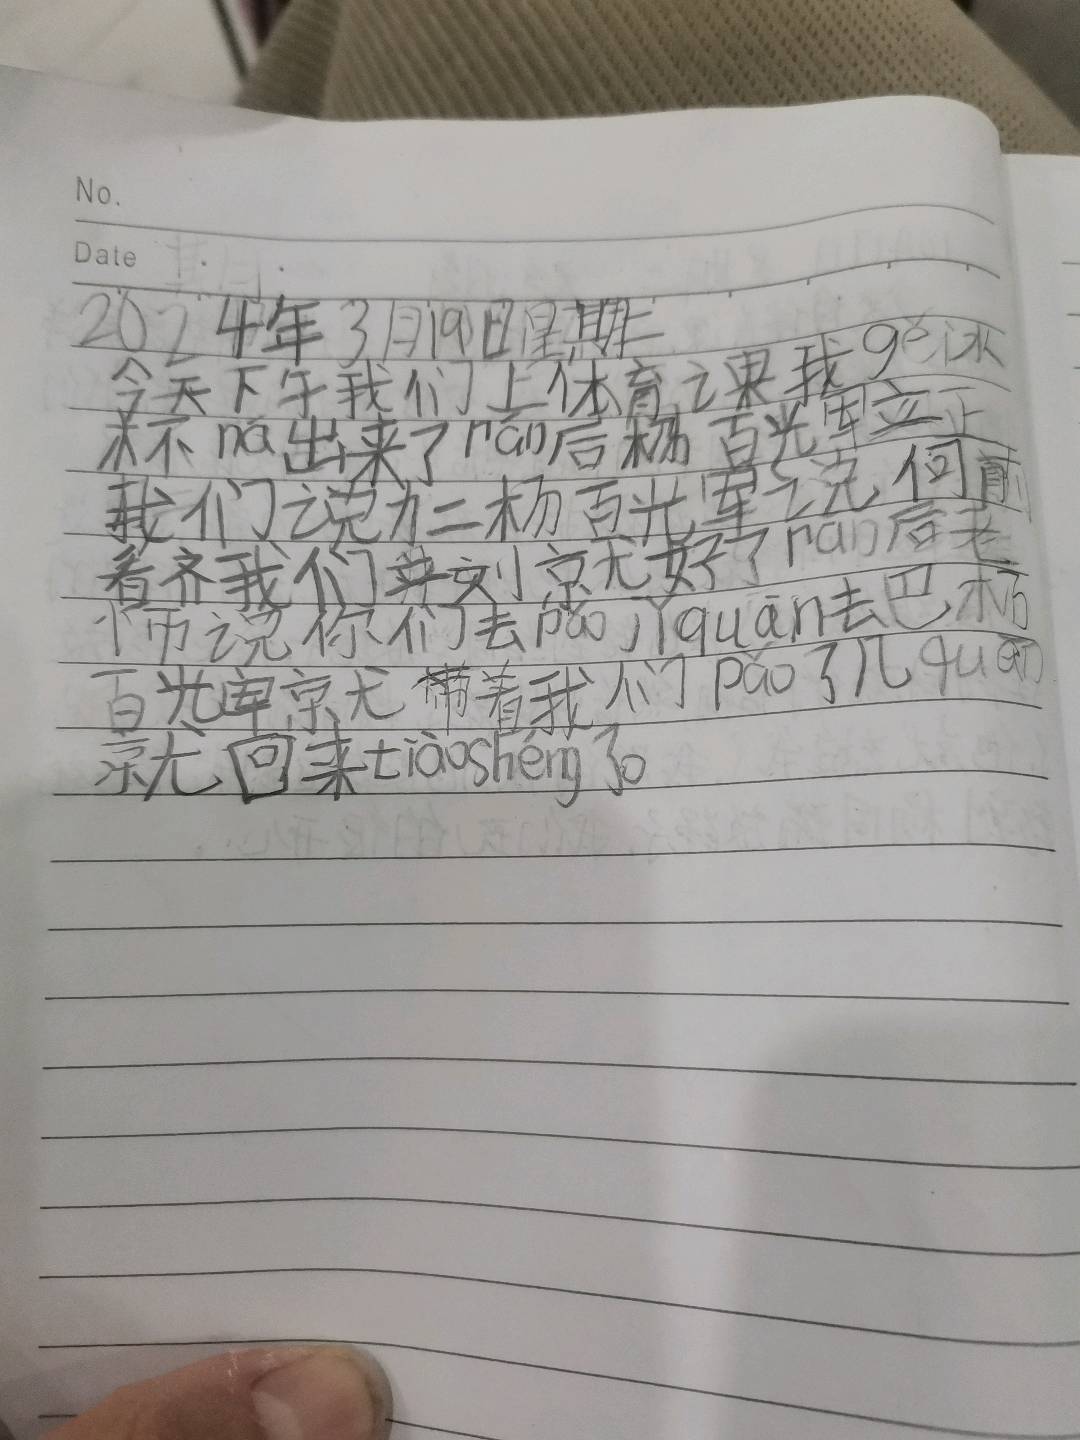 No.
Date
2024年3月19日星期二
今天下午我们上体育课我gěi冰
求不ná出来了rán后杨百光军立正
我们说加二杨百光军说何前
看齐我们立刻京尤好了rán后老
师说你们去pǎo几quān去巴杨
百光军京尤带着我们pǎo了几quān
京尤回来tiàoshéng了。